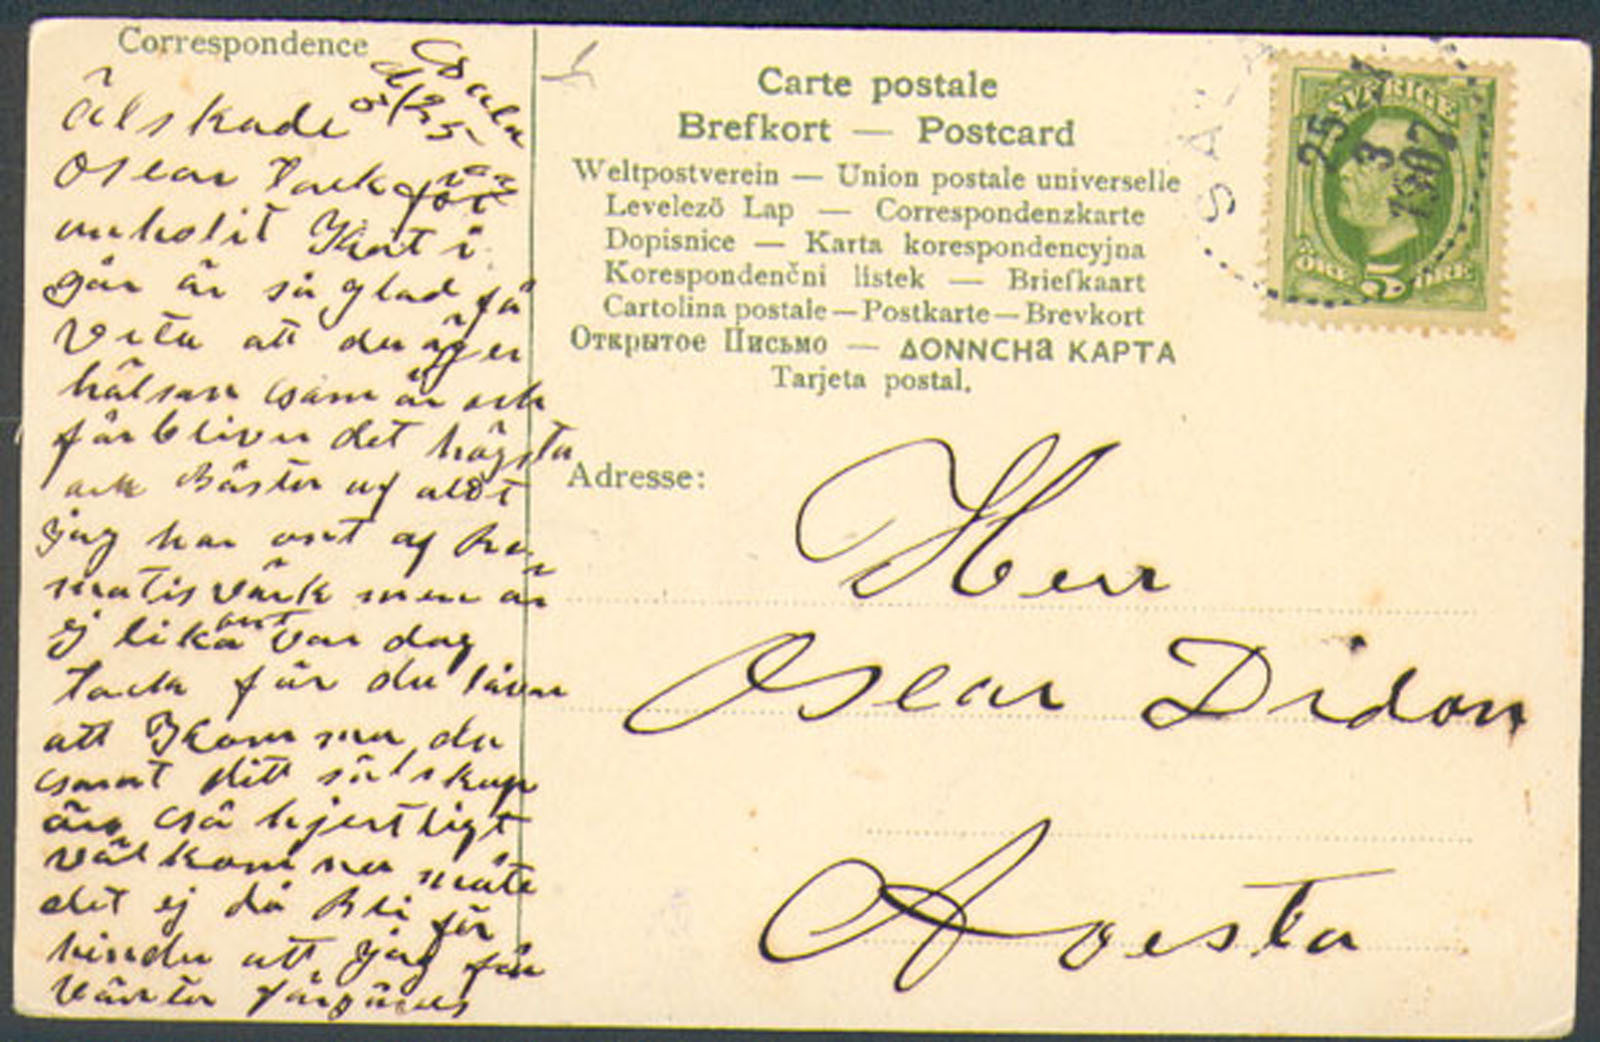 Correspondence
Sala
d 25/3
älskade
Oscar Tack för
erholit Kort i
går är så glad få
veta att du äger
hälsan som är och
förbliver det högsta
och Bästa af allt
jag har ont af Re
matisvärk men är
ej lika ont var dag
tack för du låvar
att Komma du
samt ditt sälskap
äro så hjertligt
välkomna måtte
det ej då bli för
hindra att jag får
vänta förgäves
Carte postale
Brefkort — Postcard
Weltpostverein — Union postale universelle
Levelező Lap — Correspondenzkarte
Dopisnice — Karta korespondencyjna
Korespondenční listek — Briefkaart
Cartolina postale — Postkarte — Brevkort
Открытое Письмо — ΔΟΝΝCHa ΚΑΡΤΑ
Tarjeta postal.
SALA
25 3 1907
SVERIGE
ÖRE 5 ÖRE
Adresse:
Herr
Oscar Didon
Avesta